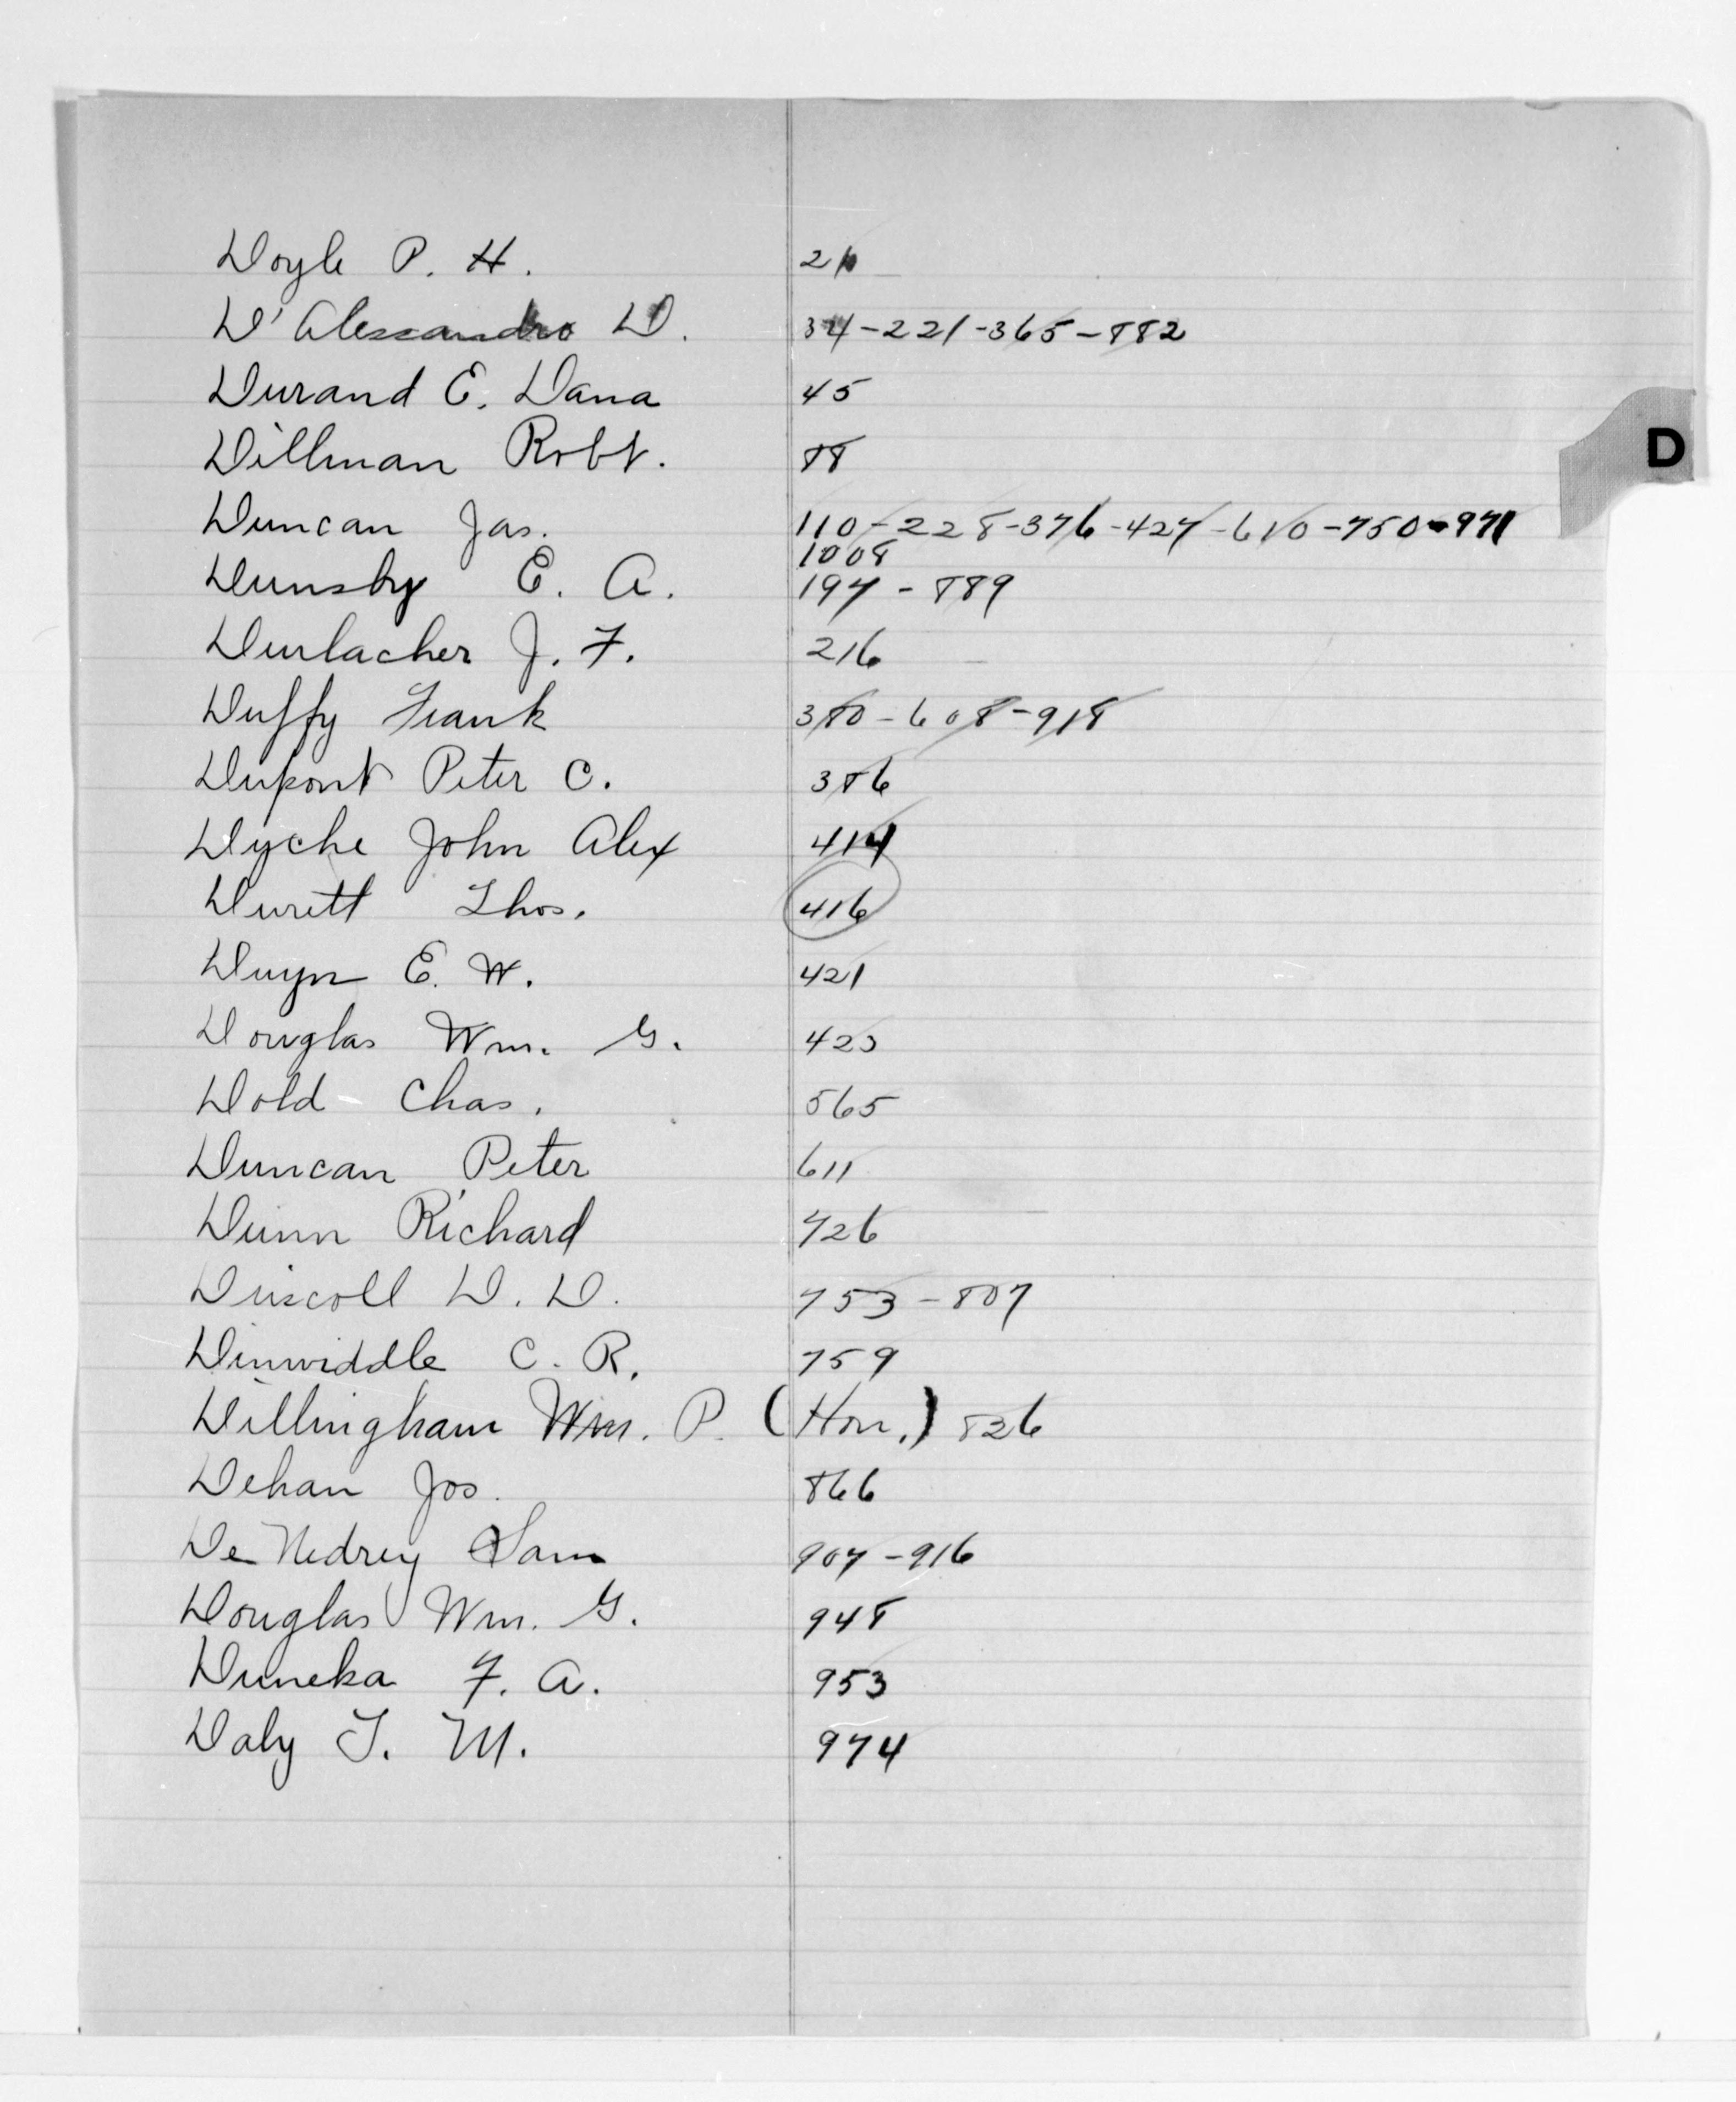 Doyle P. H. 26
D'Alessandro D. 34-221-365-882
Durand E. Dana 45
D
Dillman Robt. 88
Duncan Jas. 110-228-376-427-610-750-971
1008
Dunsby E. A. 197-889
Durlacher J. F. 216
Duffy Frank 380-608-918
Dupont Peter C. 386
Dyche John Alex 414
Durett Thos. 416
Duyn E. W. 421
Douglas Wm. G. 423
Dold Chas. 565
Duncan Peter 611
Dunn Richard 726
Driscoll D. D. 753-807
Dinwiddle C. R. 759
Dillingham Wm. P. (Hon.) 826
Dehan Jos. 866
De Nedrey Sam 907-916
Douglas Wm. G. 948
Duneka F. A. 953
Daly T. M. 974